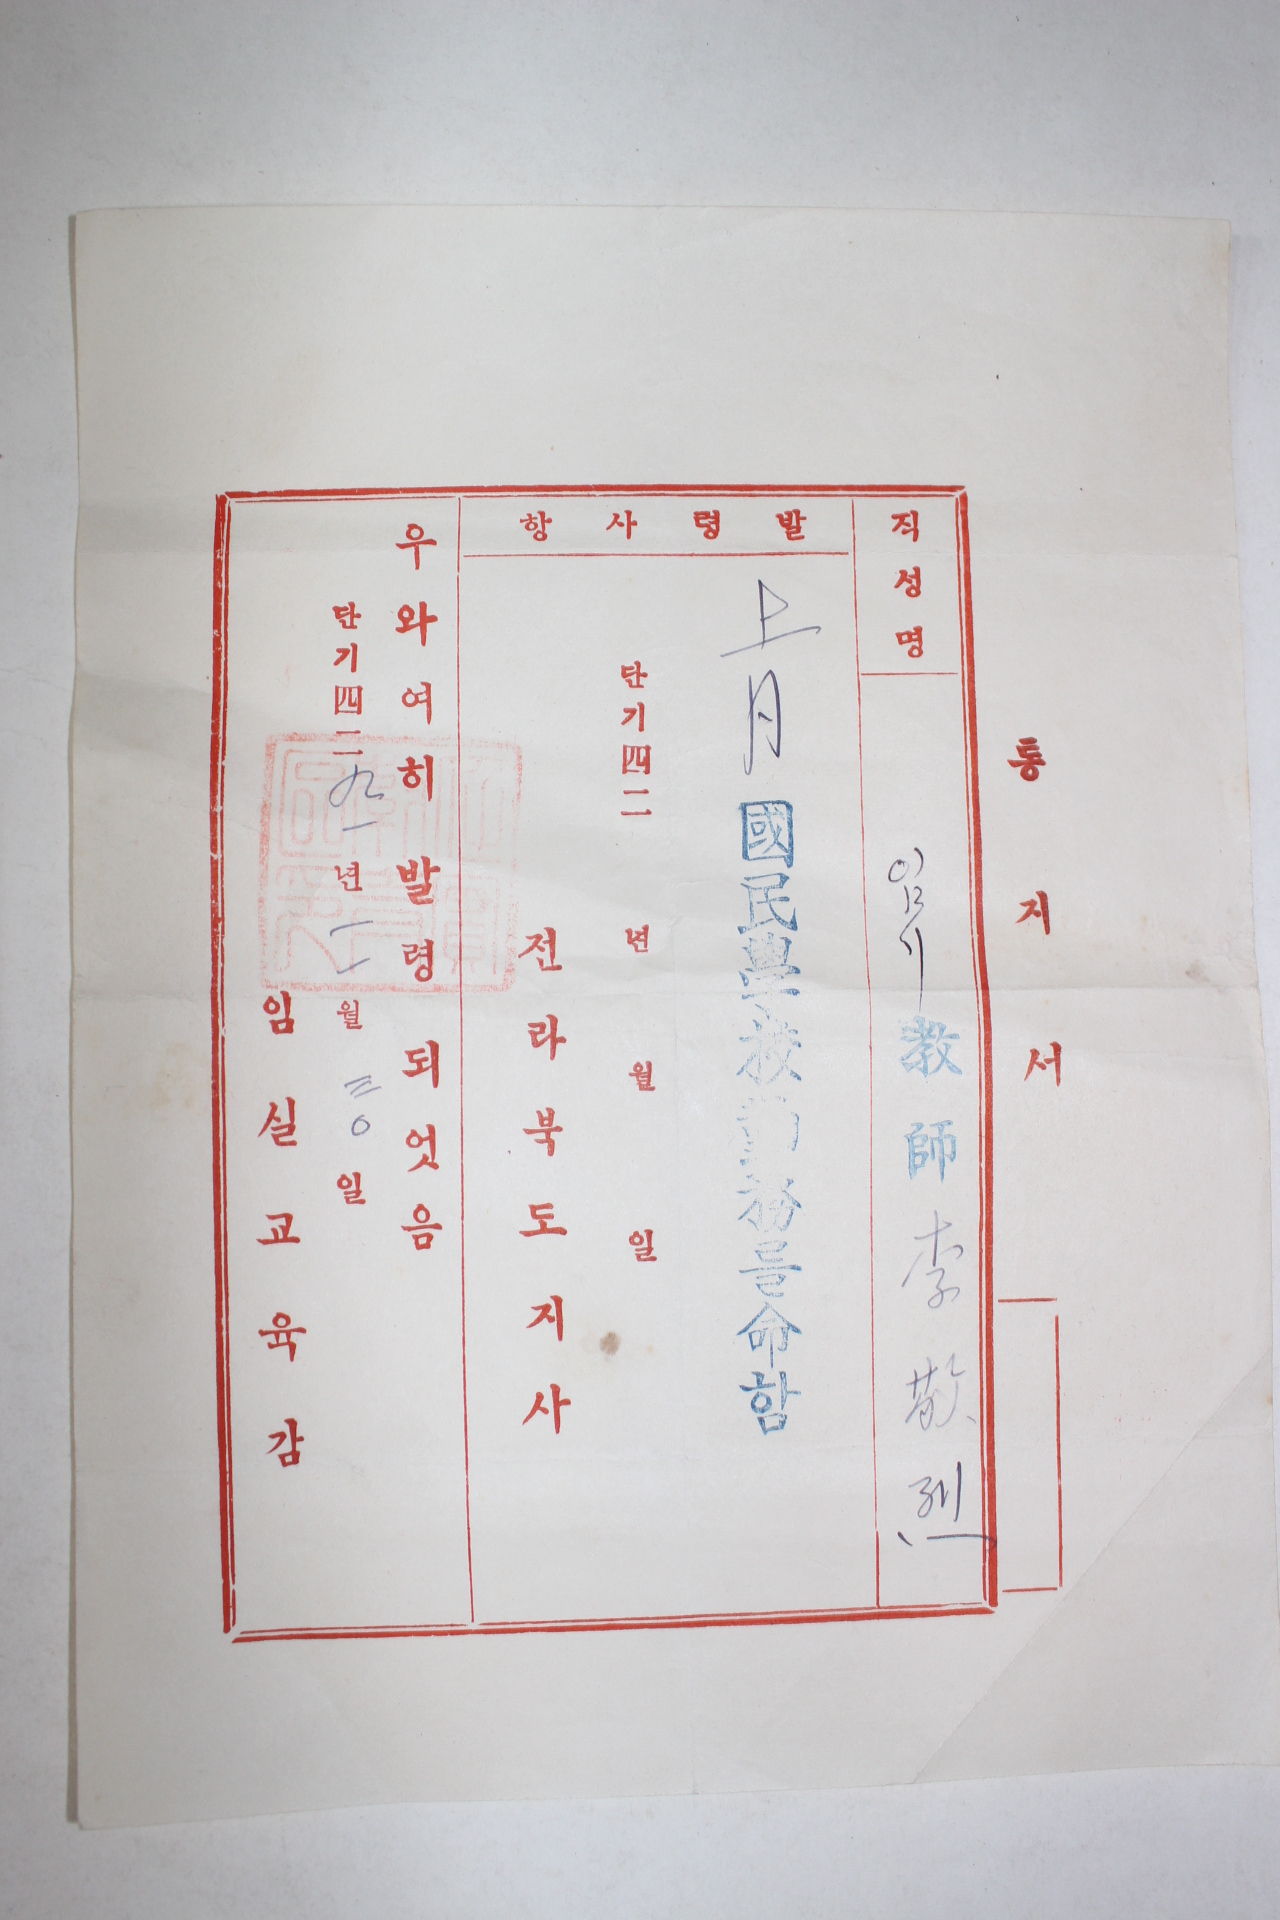 통지서
직성명
임시教師 李敬烈
발령사항
上月國民學校勤務를命함
단기四二 년 월 일
전라북도지사
우와여히발령되엇음
단기四二九一년一一월三〇일
임실교육감